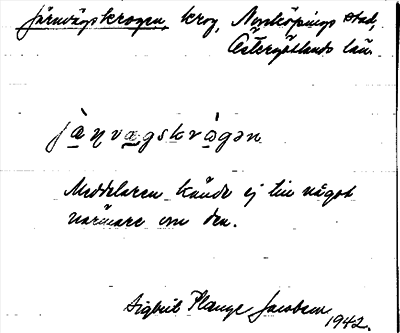 Järnvägskrogen, krog, Norrköpings stad,
Östergötlands län.
jàṇvægskrògən
Meddelaren kände ej till något
närmare om den.
Sigbrit Plange Jacobson
1942.